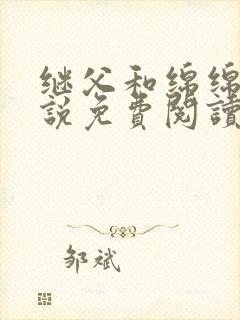 继父和绵绵
説免費閱讀
邹斌